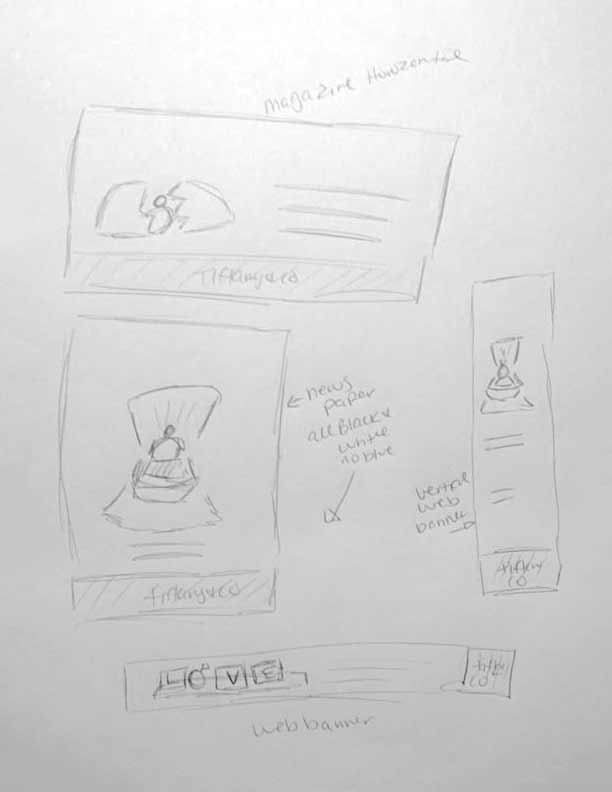 magazine Horizontal
Tiffany&co
← news
paper
all Black &
white
no blue
Tiffany&co
vertical
web
banner
Tiffany
CO
LOVE
Tiffany
CO
web banner